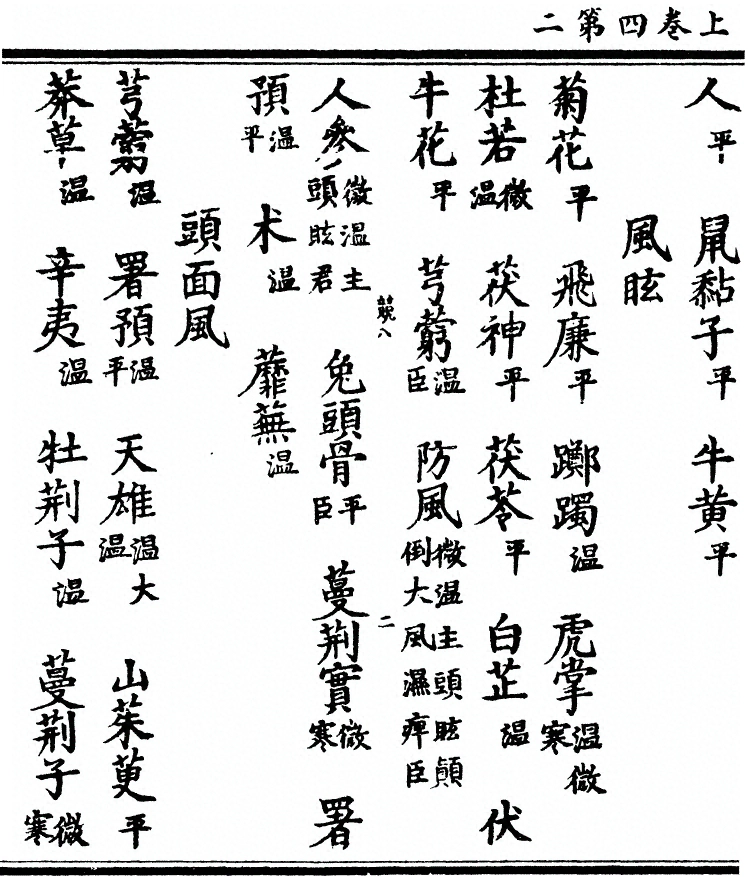 上卷四第二
人平 鼠黏子平 牛黄平
風眩
菊花平 飛廉平 躑躅温 虎掌温微寒
杜若微温 茯神平 茯苓平 白芷温 伏
牛花平 芎藭温臣 防風微温主頭眩顛倒大風濕痺臣
八 二
人參微温主頭眩君 兔頭骨平臣 蔓荆實微寒 署
預温平 术温 蘼蕪温
頭面風
芎藭温 署預温平 天雄温大温 山茱萸平
莽草温 辛夷温 牡荆子温 蔓荆子微寒